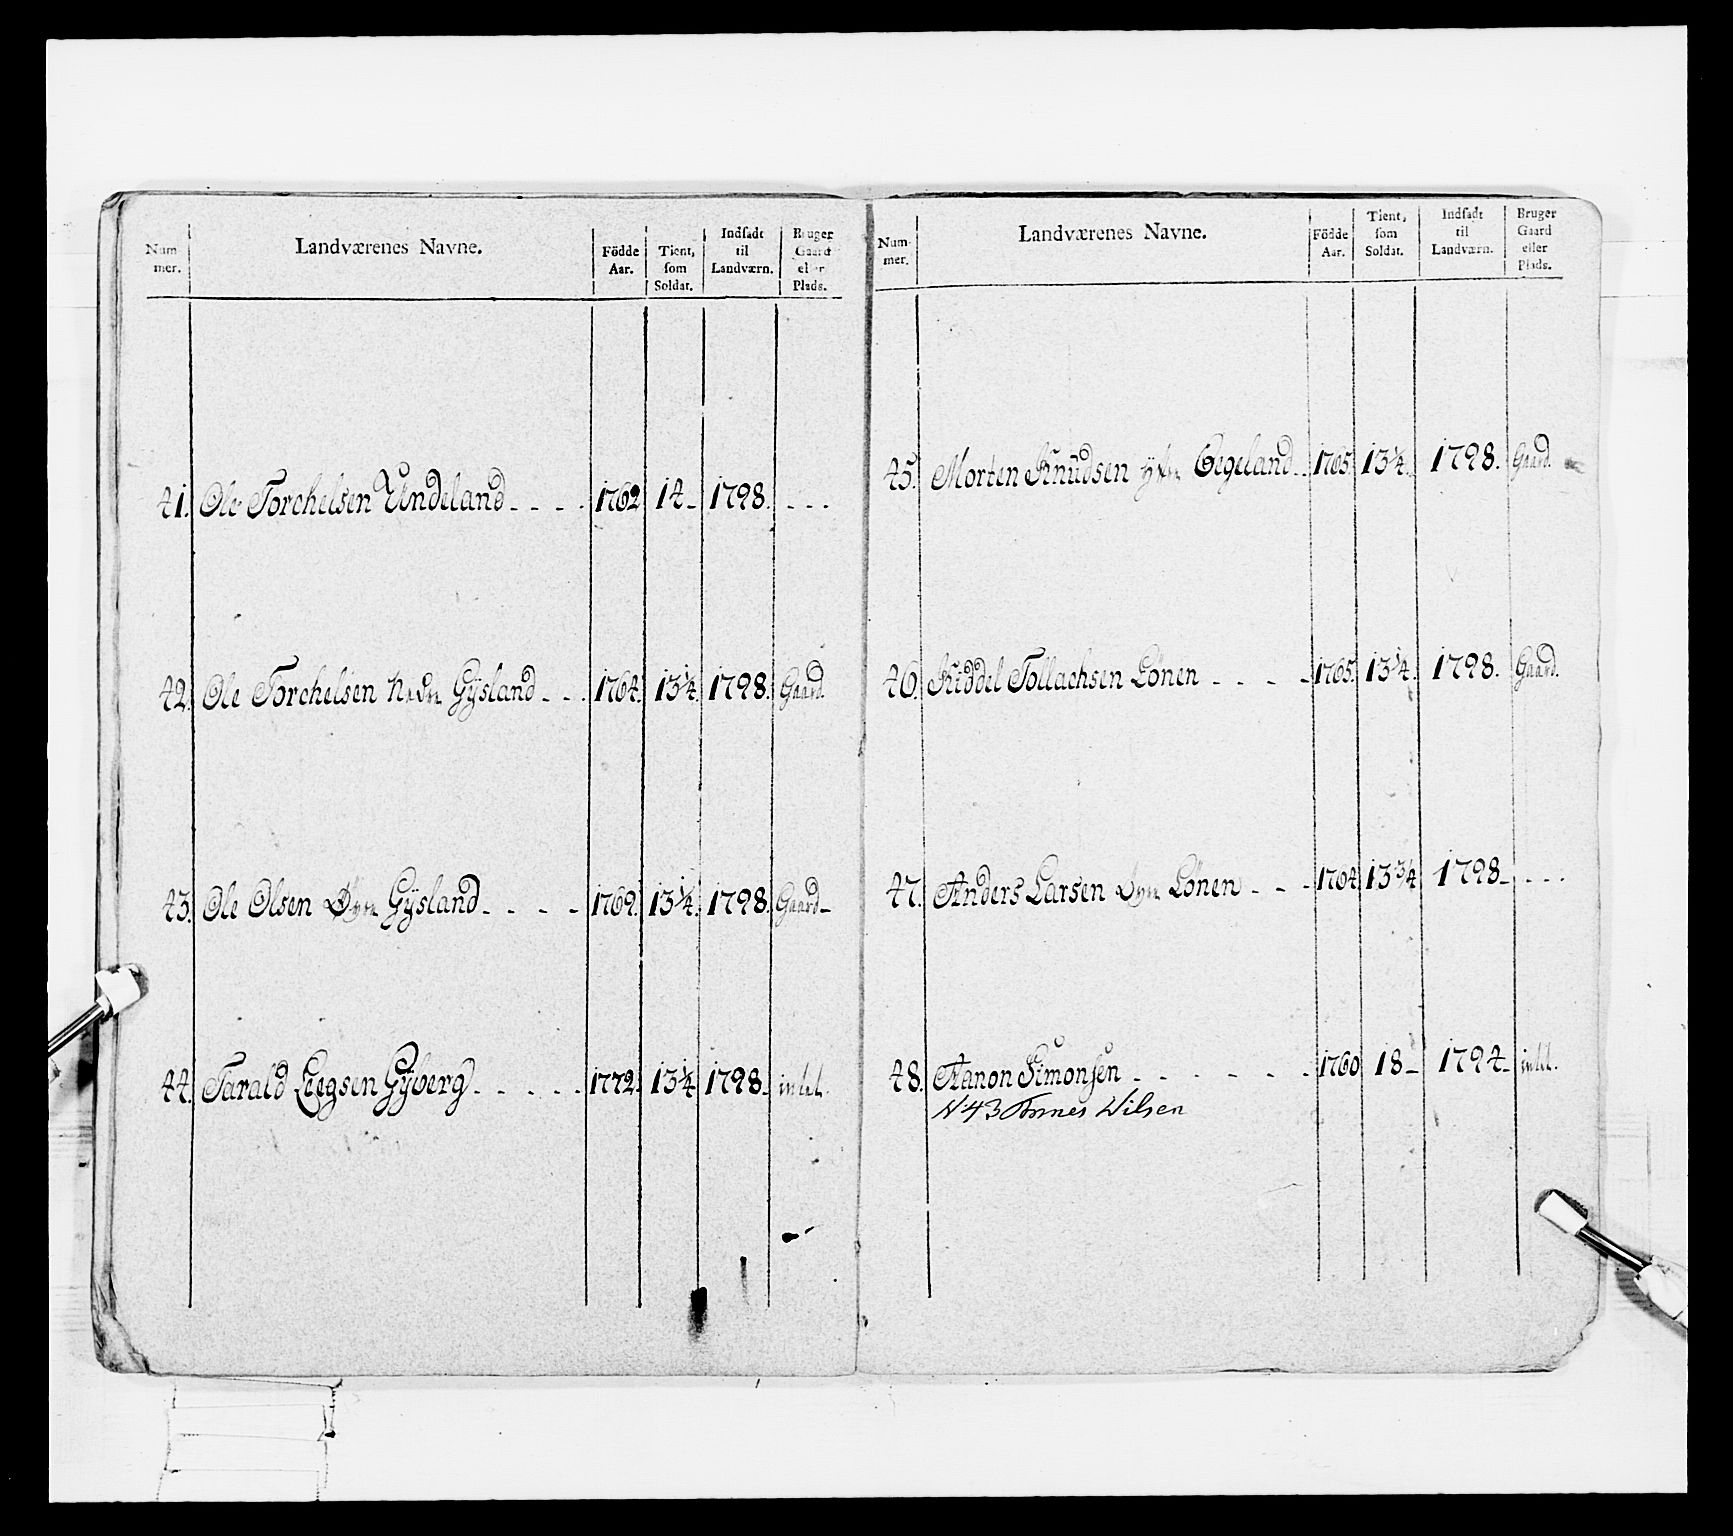 Num-mer. Landværenes Navne. Födde Aar. Tient, som Soldat. Indsadt til Landværn. Bruger Gaard eller Plads.
41. Ole Torchelsen Undeland - - - - 1762 14 - 1798. - - -
42. Ole Torchelsen Nedre Gÿsland - - - 1764. 13 1/4. 1798. Gaard.
43. Ole Olsen Øvre Gÿsland - - - - 1769. 13 1/4. 1798. Gaard -
44. Tarald Gÿberg - - - - - 1772. 13 1/4 1798. intet.
Num-mer. Landværenes Navne. Födde Aar. Tient, som Soldat. Indsadt til Landværn. Bruger Gaard eller Plads.
45. Morten Knudsen Egeland - - 1765. 13 1/4. 1798. Gaard.
46. Kiddel Tollachsen Lønen - - - - 1765. 13 1/4. 1798. Gaard.
47. Anders Larsen Øvre Lønen - - - 1764 13 3/4 1798 - - - -
48. Aanon Simonsen - - - - - - 1760 18 - 1794 - intet.
N: 43 Nilsen